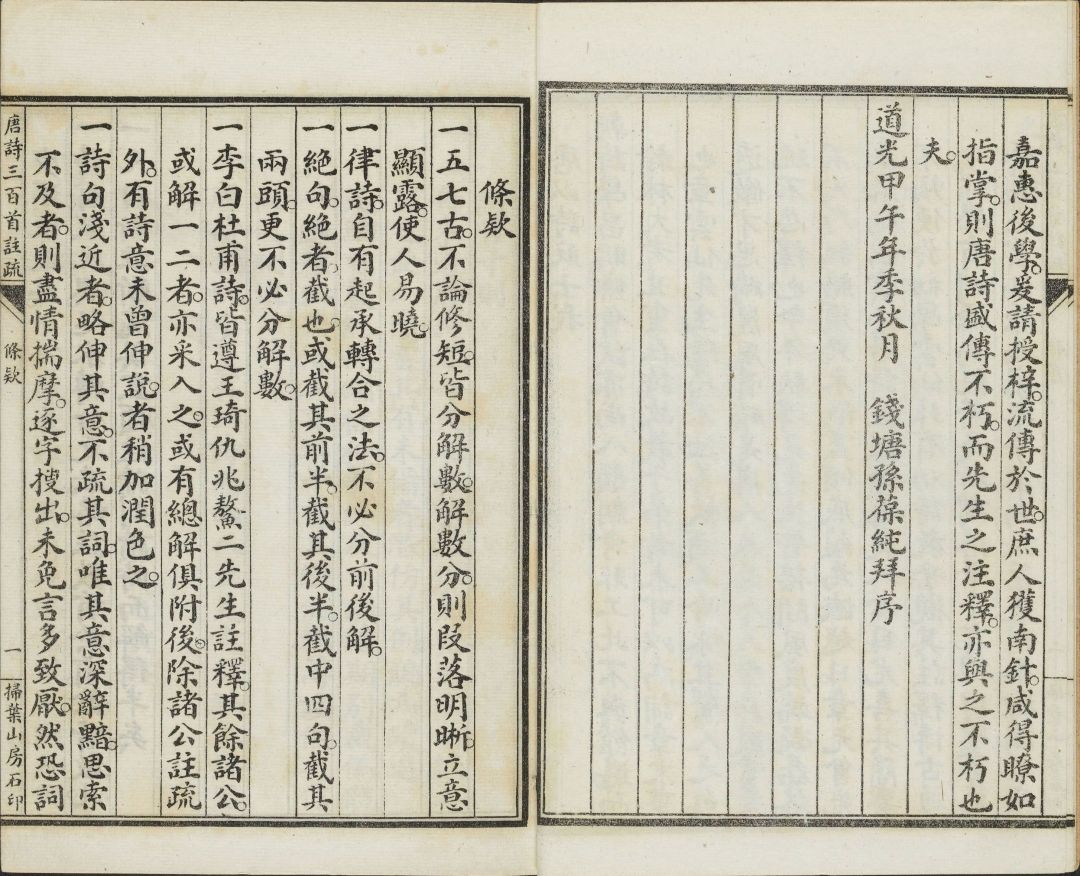 嘉惠後學。爰請授梓。流傳於世。庶人獲南針。咸得瞭如
指掌。則唐詩盛傳不朽。而先生之注釋。亦與之不朽也
夫。
道光甲午年季秋月　錢塘孫葆純拜序
條欵
一五七古。不論修短。皆分解數。解數分。則段落明晰。立意
顯露。使人易曉。
一律詩。自有起承轉合之法。不必分前後解。
一絕句。絕者。截也。或截其前半。截其後半。截中四句。截其
兩頭。更不必分解數。
一李白杜甫詩。皆遵王琦仇兆鰲二先生註釋。其餘諸公。
或解一二者。亦采入之。或有總解俱附後。除諸公註疏
外。有詩意未曾伸說。者稍加潤色之。
一詩句淺近者。略伸其意。不疏其詞。唯其意深辭黯。思索
不及者。則盡情揣摩。逐字搜出。未免言多致厭。然恐詞
唐詩三百首註疏
條欵
一
掃葉山房石印